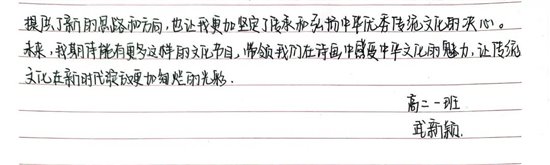 提供了新的思路和方向，也让我更加坚定了传承和弘扬中华优秀传统文化的决心。
未来，我期待能有更多这样的文化节目，带领我们在诗画中感受中华文化的魅力，让传统
文化在新时代绽放更加绚烂的光彩。
高二一班
武新颖